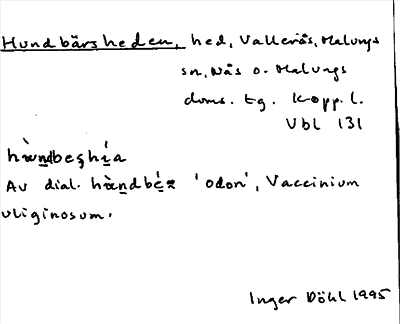 Hundbärsheden, hed, Vallerås, Malungs
sn, Nås o. Malungs
doms. tg. Kopp. l.
Vbl 131
Av dial. 'odon', Vaccinium
uliginosum.
Inger Döhl 1995